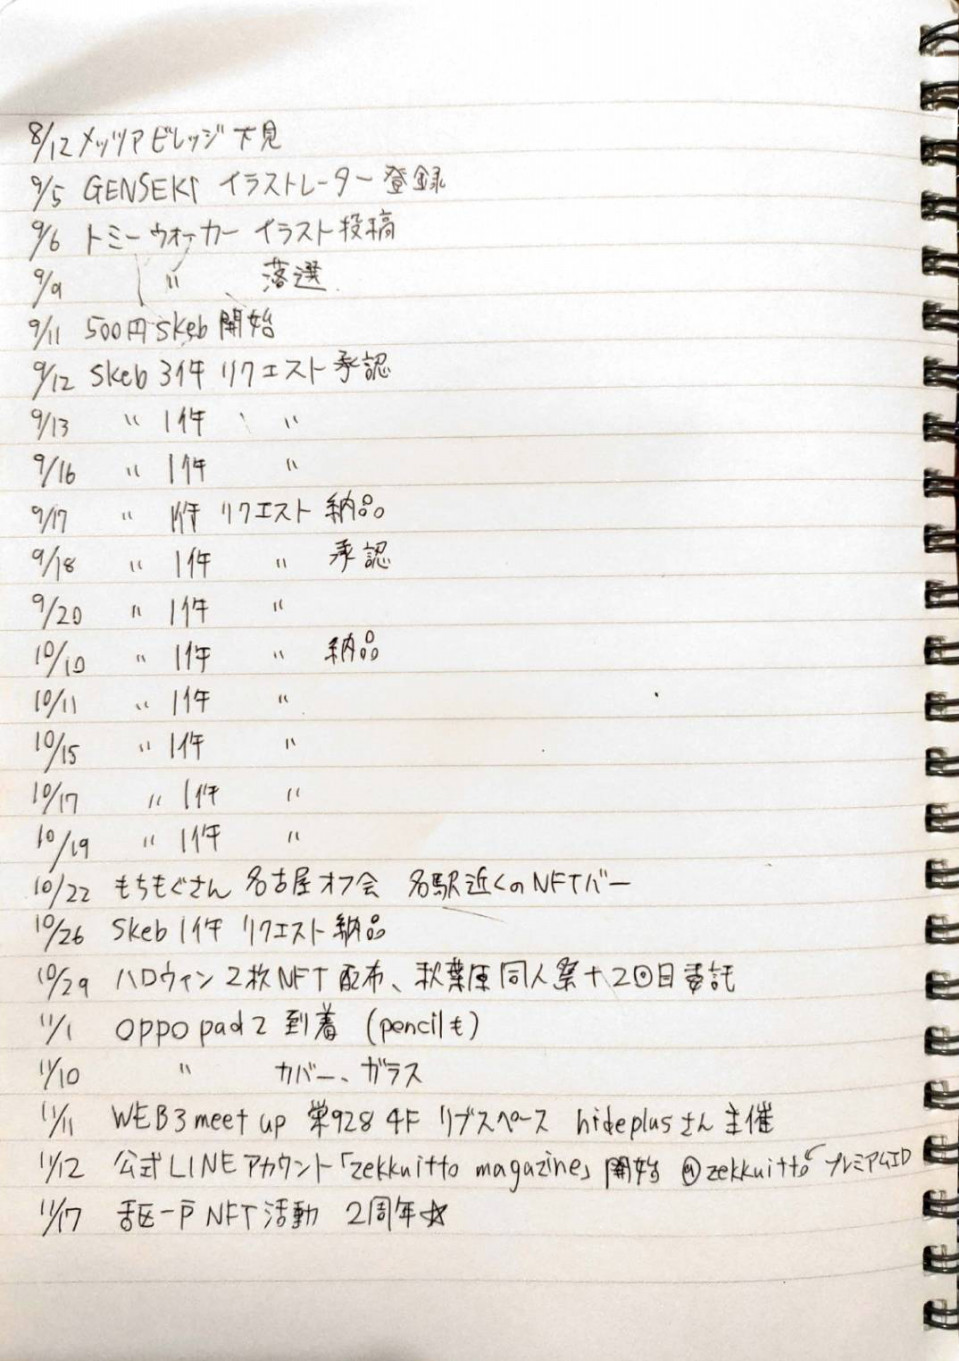 8/12 メッツァビレッジ下見
9/5 GENSEKI イラストレーター登録
9/6 トミーウォーカー イラスト投稿
9/9 〃 落選
9/11 500円skeb開始
9/12 Skeb 3件 リクエスト承認
9/13 〃 1件 〃
9/16 〃 1件 〃
9/17 〃 1件 リクエスト 納品
9/18 〃 1件 〃 承認
9/20 〃 1件 〃
10/10 〃 1件 〃 納品
10/11 〃 1件 〃
10/15 〃 1件 〃
10/17 〃 1件 〃
10/19 〃 1件 〃
10/22 もちもぐさん 名古屋オフ会 名駅近くのNFTバー
10/26 Skeb 1件 リクエスト納品
10/29 ハロウィン2枚NFT配布、秋葉原同人祭 十2回目委託
11/1 oppo pad2 到着 (pencilも)
11/10 〃 カバー、ガラス
11/11 WEB3 meet up 栄928 4F リブスペース hideplusさん主催
11/12 公式LINEアカウント「zekkuitto magazine」開始 @zekkuitto プレミアムID
11/17 一戸NFT活動 2周年☆